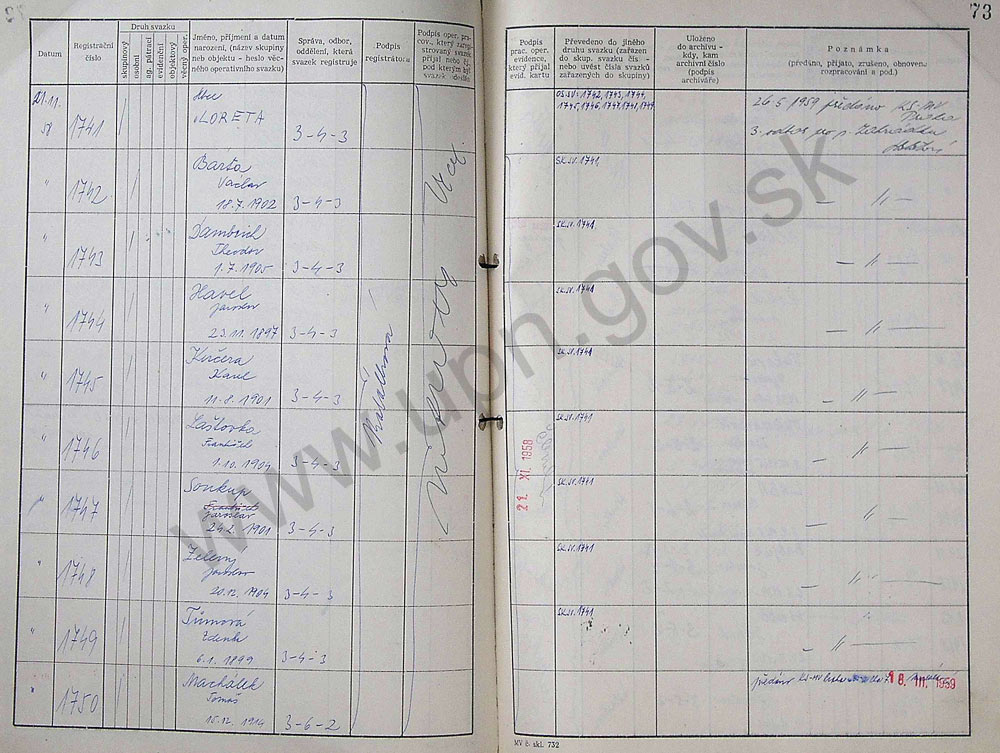 73
Datum
Registrační číslo
Druh svazku
skupinový
osobní
ag. pátrací
evidenční
objektový
věcný oper.
Jméno, příjmení a datum
narození, (název skupiny
neb objektu - heslo věc-
ného operativního svazku)
Správa, odbor,
oddělení, která
svazek registruje
Podpis
registrátora
Podpis oper. pra-
cov., který zareg-
istrovaný svazek
přijal nebo č.,
pod kterým byl
svazek dodán
Podpis
prac. oper.
evidence,
který přijal
evid. kartu
Převedeno do jiného
druhu svazku (zařazen
do skup. svazku čís. -
nebo uvést čísla svazků
zařazených do skupiny)
Uloženo
do archivu -
kdy, kam
archivní číslo
(podpis
archiváře)
Poznámka
(předáno, přijato, zrušeno, obnoveno
rozpracování a pod.)
21.11.
58
1741
LORETA
3-4-3
OS.SV: 1742, 1743, 1744,
1745, 1746, 1747, 1748, 1749
26.5.1959 předáno KS-MV
3. odbor
" 1742
Barta
Václav
18.7.1902 3-4-3
SK.SV. 1741
— " —
" 1743
Dambrich
Theodor
1.7.1905 3-4-3
SK.SV. 1741
— " —
" 1744
Havel
Jaroslav
23.11.1897 3-4-3
SK.SV. 1741
— " —
" 1745
Kučera
Karel
11.8.1901 3-4-3
SK.SV. 1741
— " —
" 1746
Laštovka
František
1.10.1904 3-4-3
SK.SV. 1741
— " —
" 1747
Soukup
František
Jaroslav
24.2.1901 3-4-3
SK.SV. 1741
— " —
" 1748
Zelený
Jaroslav
20.12.1904 3-4-3
SK.SV. 1741
— " —
" 1749
Tůmová
Zdenka
6.1.1899 3-4-3
SK.SV. 1741
— " —
" 1750
Machálek
Tomáš
15.12.1914 3-6-2
předáno KS-MV
18. III. 1959
21. XI. 1958
MV č. skl. 732
www.upn.gov.sk